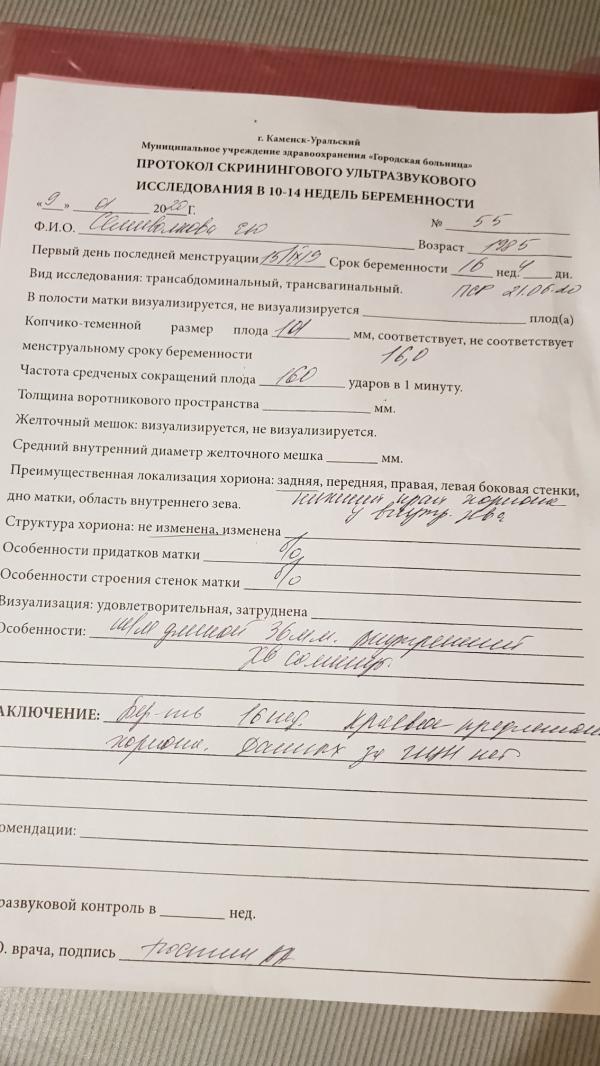 г. Каменск-Уральский
Муниципальное учреждение здравоохранения «Городская больница»
ПРОТОКОЛ СКРИНИНГОВОГО УЛЬТРАЗВУКОВОГО
ИССЛЕДОВАНИЯ В 10-14 НЕДЕЛЬ БЕРЕМЕННОСТИ
«9» 01 2020 Г. № 55
Ф.И.О. Возраст 1985
Первый день последней менструации 15/IX/19 Срок беременности 16 нед. 4 дн.
Вид исследования: трансабдоминальный, трансвагинальный. ПСР 21.06.20
В полости матки визуализируется, не визуализируется плод(а)
Копчико-теменной размер плода 101 мм, соответствует, не соответствует
менструальному сроку беременности 16,0
Частота средченых сокращений плода 160 ударов в 1 минуту.
Толщина воротникового пространства мм.
Желточный мешок: визуализируется, не визуализируется.
Средний внутренний диаметр желточного мешка мм.
Преимущественная локализация хориона: задняя, передняя, правая, левая боковая стенки,
дно матки, область внутреннего зева. нижний край хориона
у внутр. зева
Структура хориона: не изменена, изменена
Особенности придатков матки б/о
Особенности строения стенок матки б/о
Визуализация: удовлетворительная, затруднена
Особенности: длиной 36 мм. внутренний
зев сомкнут.
АКЛЮЧЕНИЕ: Бер-ть 16 нед. Краевое предлежан
хориона. Данных за ИЦН нет
омендации:
развуковой контроль в нед.
О. врача, подпись